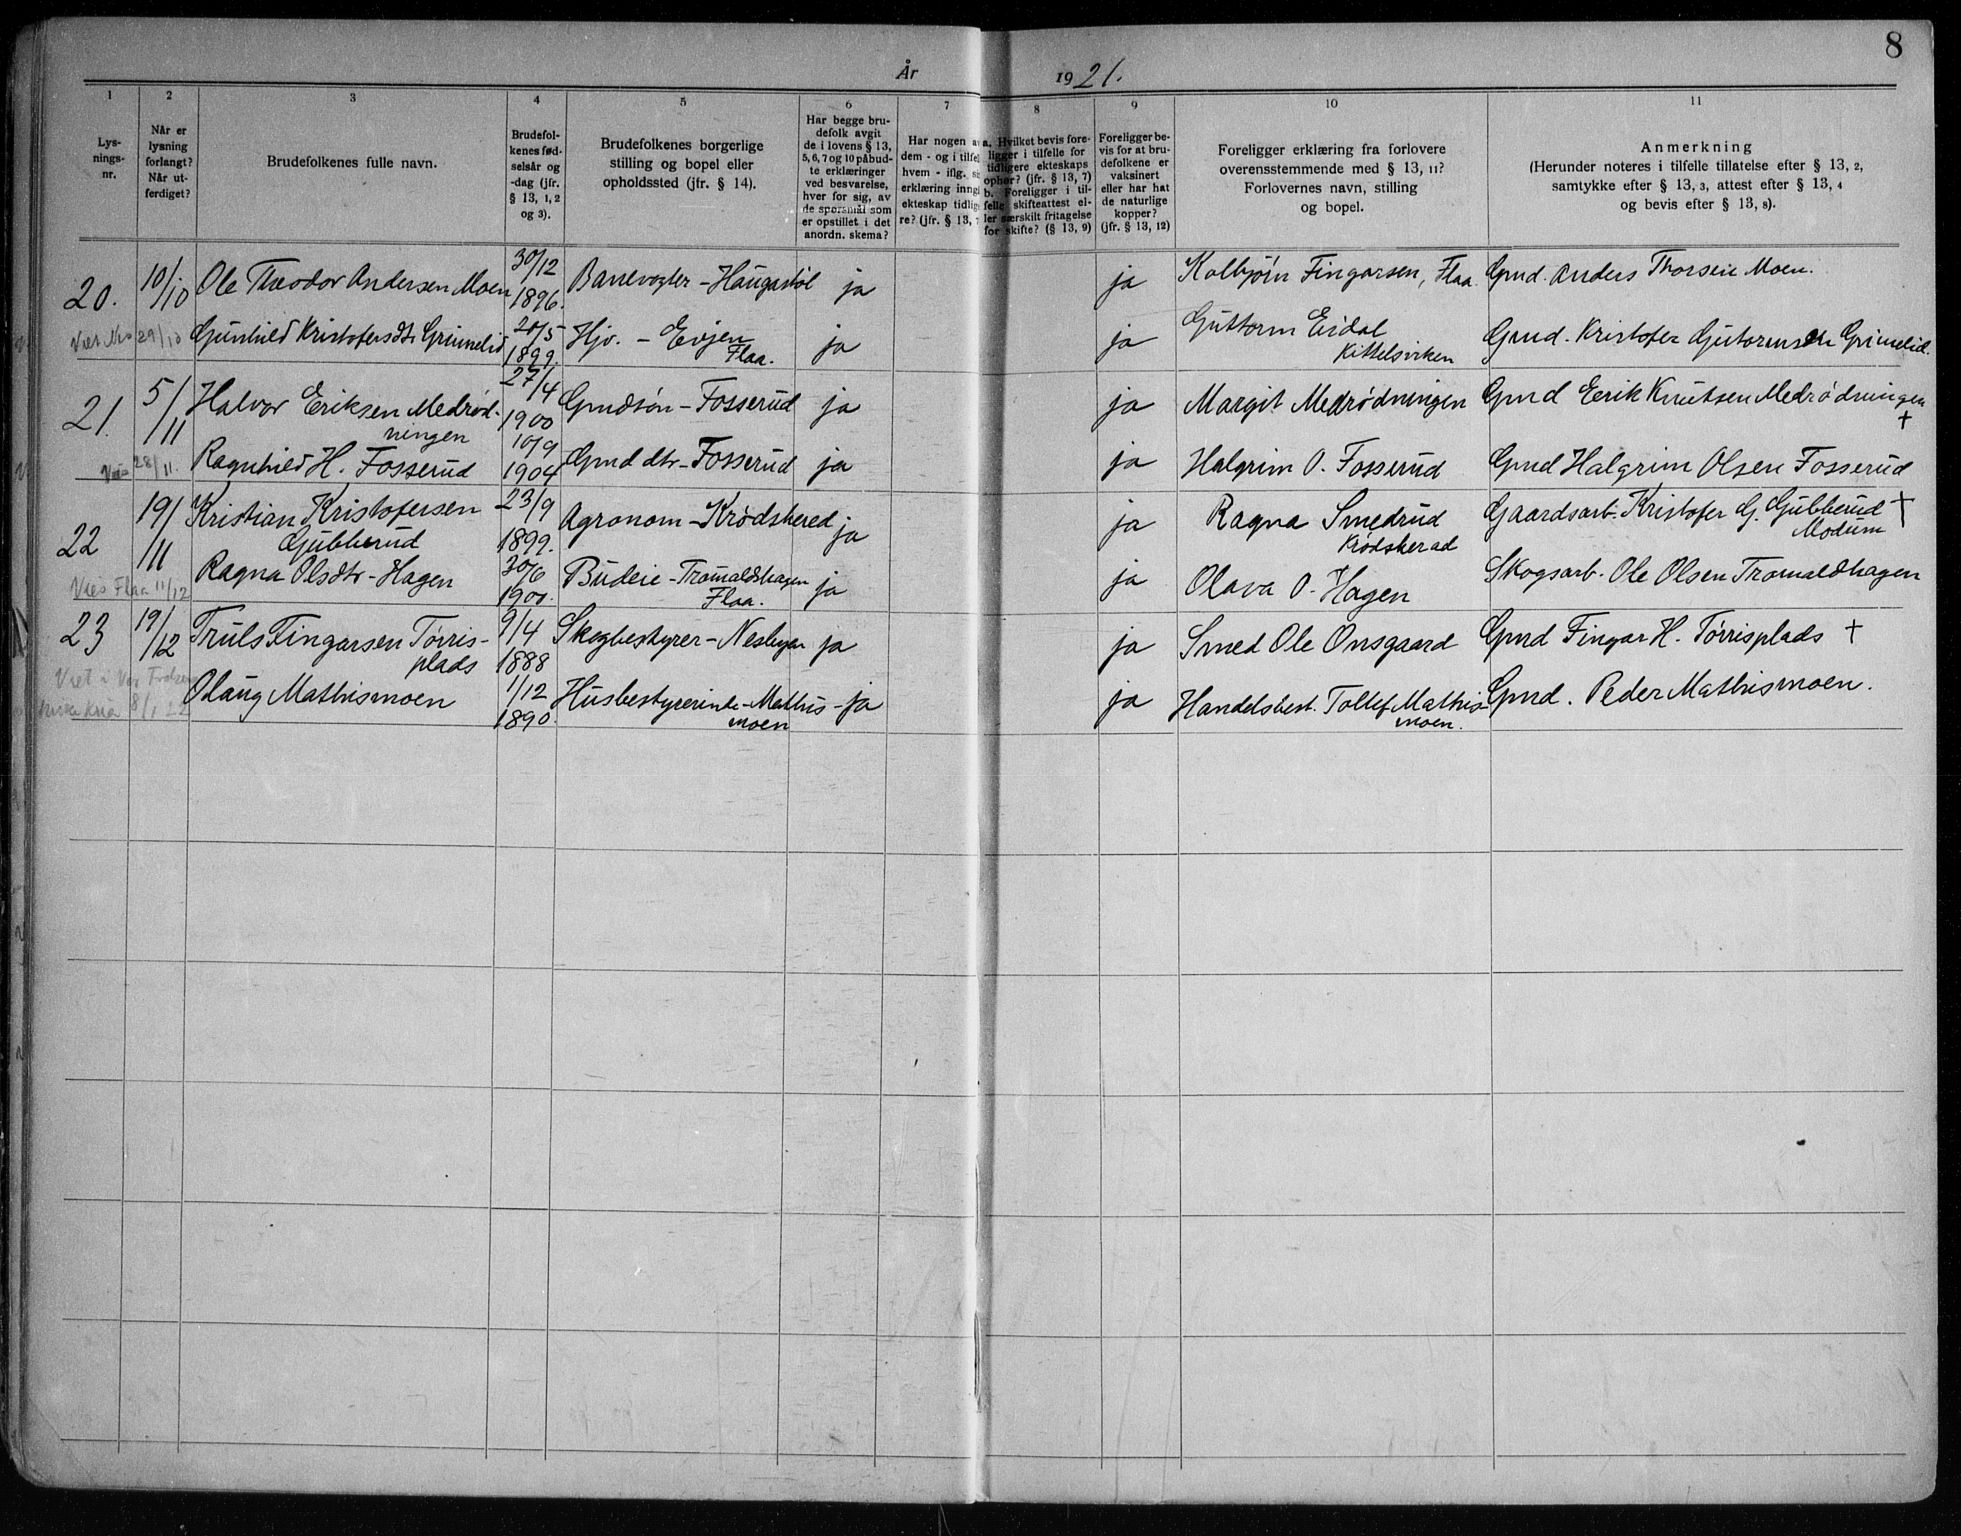 8
År 1921.
1 2 3 4 5 6 7 8 9 10 11
Lys-
nings-
nr.
Når er
lysning
forlangt?
Når ut-
ferdiget?
Brudefolkenes fulle navn.
Brudefol-
kenes fød-
selsår og
-dag (jfr.
§ 13, 1, 2
og 3).
Brudefolkenes borgerlige
stilling og bopel eller
opholdssted (jfr. § 14).
Har begge bru-
defolk avgit
de i lovens § 13,
5, 6, 7 og 10 påbud-
te erklæringer
ved besvarelse,
hver for sig, av
de spørsmål som
er opstillet i det
anordn. skema?
Har nogen a
dem - og i tilfel
hvem - iflg. s
erklæring inng
ekteskap tidlig
re? (jfr. § 13,
a. Hvilket bevis fore-
ligger i tilfelle for
tidligere ekteskaps
ophør? (jfr. § 13, 7)
b. Foreligger i til-
felle skifteattest el-
ler særskilt fritagelse
for skifte? (§ 13, 9)
Foreligger be-
vis for at bru-
defolkene er
vaksinert
eller har hat
de naturlige
kopper?
(jfr. § 13, 12)
Foreligger erklæring fra forlovere
overensstemmende med § 13, 11?
Forlovernes navn, stilling
og bopel.
Anmerkning
(Herunder noteres i tilfelle tillatelse efter § 13, 2,
samtykke efter § 13, 3, attest efter § 13, 4
og bevis efter § 13, 8).
20. 10/10 Ole Theodor Andersen Moen 30/12 1896. Banevogter - Haugastøl ja ja Kolbjørn Fingarsen, Flaa. Gmd. Anders Thorsen Moen.
Viet Nes 29/10 Gunhild Kristofersdtr Grimelid 20/5 1899. Hjv. - Evjen Flaa. ja ja Guttorm Eidal Kittelsvirken Gmd. Kristofer Gutormsen Grimelid.
21. 5/11 Halvor Eriksen Medrød-
ningen 27/4 1900 Gmdsøn - Fosserud ja ja Margit Medrødningen Gmd Eerik Knutsen Medrødningen †
28/11. Ragnhild H. Fosserud 10/9 1904 Gmd dtr - Fosserud ja ja Halgrim O. Fosserud Gmd Halgrim Olsen Fosserud
22 19/11 Kristian Kristofersen
Gubberud 23/9 1899. Agronom - Krødshered ja ja Ragna Smedrud Krødsherad Gaardsarb. Kristofer G. Gubberud † Modum
Vies Flaa 11/12 Ragna Olsdtr - Hagen 30/6 1900. Budeie - Tromaldshagen Flaa. ja ja Olava O. Hagen Skogsarb. Ole Olsen Tromaldhagen
23 19/12 Truls Fingarsen Tørris-
plads 9/4 1888 Skogbestyrer - Nesbyen ja ja Smed Ole Onsgaard Gmd Fingar H. Tørrisplads †
Viet i Vor Frelsers
Kirke Kria 8/1 22 Olaug Mathismoen 1/12 1890. Husbestyrerinde - Mathis-
moen ja ja Handelsbest. Tollef Mathis-
moen. Gmd. Peder Mathismoen.